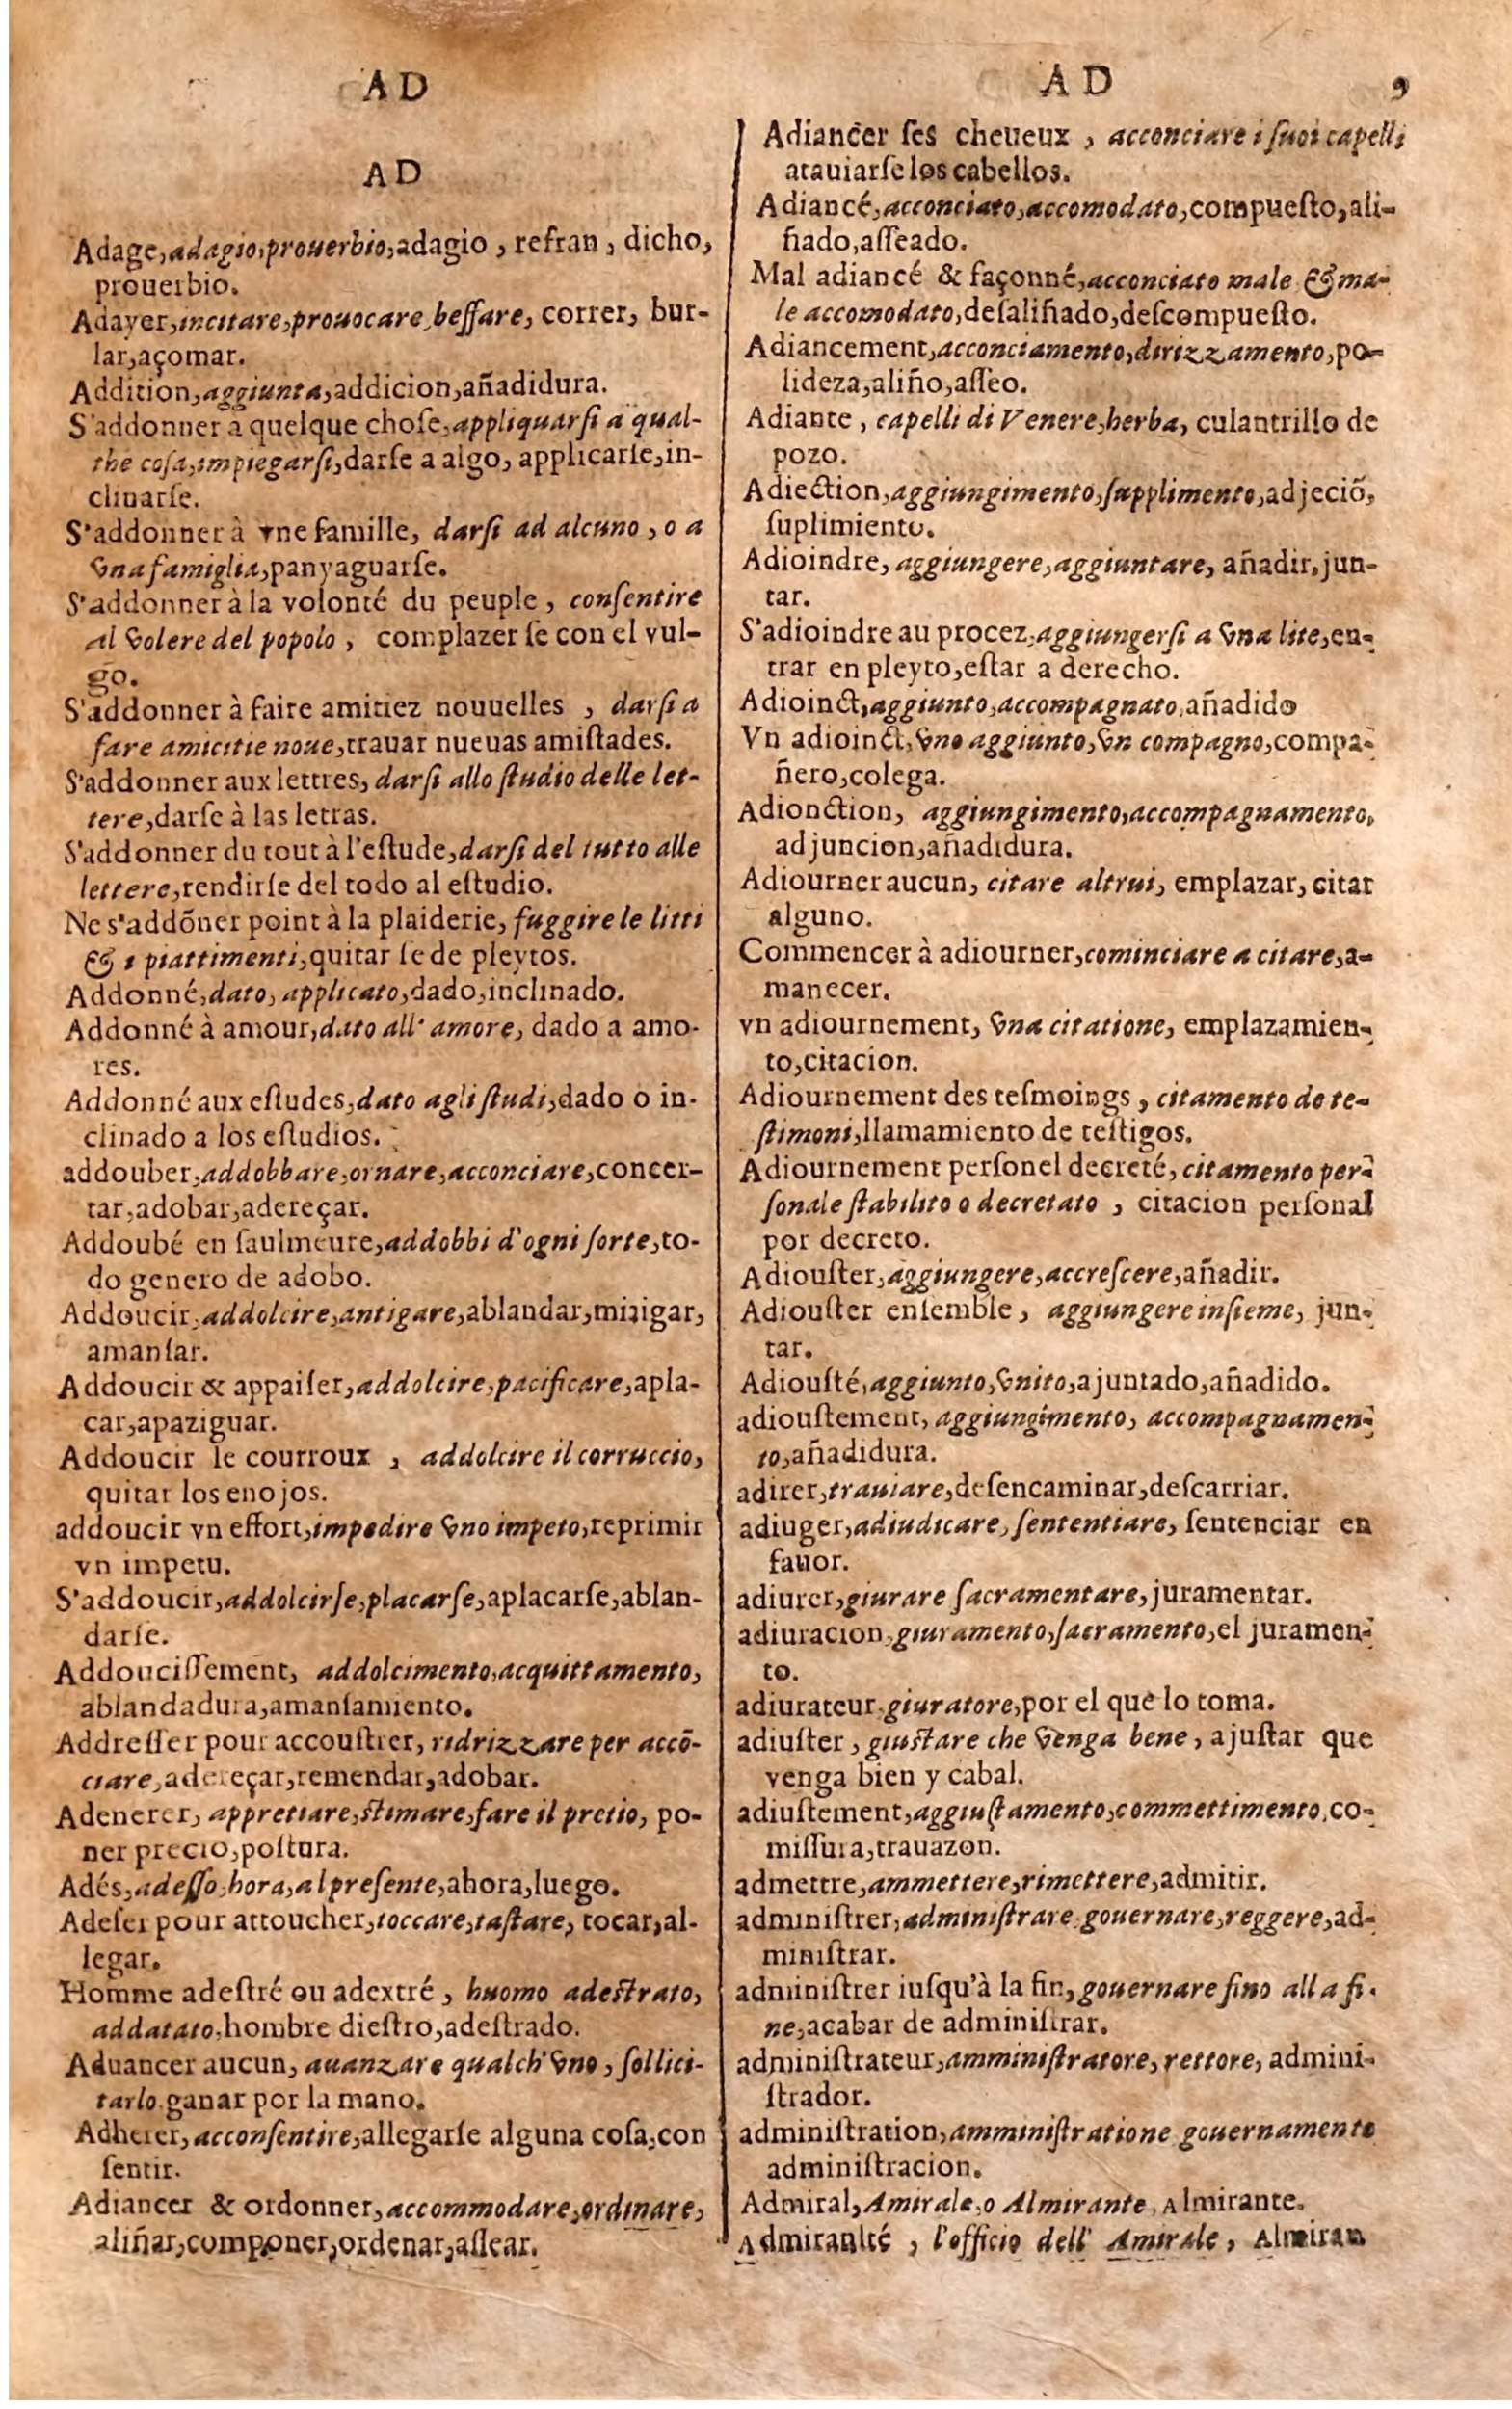 AD
AD
Adage, adagio, prouerbio, adagio, refran, dicho,
prouerbio.
Adayer, incitare, prouocare, beſſare, correr, bur-
lar, açomar.
Addition, aggiunta, addicion, añadidura.
S'addonner à quelque choſe, appliquarſi a qual-
che coſa, impiegarſi, darſe a algo, applicarſe, in-
clinarſe.
S'addonner à vne famille, darſi ad alcuno, o a
vna famiglia, panyaguarſe.
S'addonner à la volonté du peuple, conſentire
al volere del popolo, complazer ſe con el vul-
go.
S'addonner à faire amitiez nouuelles, darſi a
fare amicitie noue, trauar nueuas amiſtades.
S'addonner aux lettres, darſi allo ſtudio delle let-
tere, darſe à las letras.
S'addonner du tout à l'eſtude, darſi del tutto alle
lettere, rendirſe del todo al eſtudio.
Ne s'addõner point à la plaiderie, fuggire le litti
& i piattimenti, quitar ſe de pleytos.
Addonné, dato, applicato, dado, inclinado.
Addonné à amour, dato all' amore, dado a amo-
res.
Addonné aux eſtudes, dato agli ſtudi, dado o in-
clinado a los eſtudios.
addouber, addobbare, ornare, acconciare, concer-
tar, adobar, adereçar.
Addoubé en ſaulmeure, addobbi d'ogni ſorte, to-
do genero de adobo.
Addoucir, addolcire, antigare, ablandar, mitigar,
amanſar.
Addoucir & appaiſer, addolcire, pacificare, apla-
car, apaziguar.
Addoucir le courroux, addolcire il corruccio,
quitar los enojos.
addoucir vn effort, impedire vno impeto, reprimir
vn impetu.
S'addoucir, addolcirſe, placarſe, aplacarſe, ablan-
darſe.
Addouciſſement, addolcimento, acquittamento,
ablandadura, amanſamiento.
Addreſſer pour accouſtrer, ridrizzare per accõ-
ciare, adereçar, remendar, adobar.
Adenerer, appretiare, ſtimare, fare il pretio, po-
ner precio, poſtura.
Adés, adeſſo, hora, al preſente, ahora, luego.
Adeſer pour attoucher, toccare, taſtare, tocar, al-
legar.
Homme adeſtré ou adextré, huomo adeſtrato,
addatato, hombre dieſtro, adeſtrado.
Aduancer aucun, auanzare qualch' vno, ſollici-
tarlo. ganar por la mano.
Adherer, acconſentire, allegarſe alguna coſa, con
ſentir.
Adiancer & ordonner, accommodare, ordinare,
aliñar, componer, ordenar, aſſear.
AD 9
Adiancer ſes cheueux, acconciare i ſuoi capelli
atauiarſe los cabellos.
Adiancé, acconciato, accomodato, compueſto, ali-
ñado, aſſeado.
Mal adiancé & façonné, acconciato male & ma-
le accomodato, deſaliñado, deſcompueſto.
Adiancement, acconciamento, dirizzamento, po-
lideza, aliño, aſſeo.
Adiante, capelli di Venere, herba, culantrillo de
pozo.
Adiection, aggiungimento, ſupplimento, adjeciõ,
ſuplimiento.
Adioindre, aggiungere, aggiuntare, añadir, jun-
tar.
S'adioindre au procez, aggiungerſi a vna lite, en-
trar en pleyto, eſtar a derecho.
Adioinct, aggiunto, accompagnato, añadido
Vn adioinct, vno aggiunto, vn compagno, compa-
ñero, colega.
Adionction, aggiungimento, accompagnamento,
adjuncion, añadidura.
Adiourner aucun, citare altrui, emplazar, citar
alguno.
Commencer à adiourner, cominciare a citare, a-
manecer.
vn adiournement, vna citatione, emplazamien-
to, citacion.
Adiournement des teſmoings, citamento de te-
ſtimoni, llamamiento de teſtigos.
Adiournement perſonel decreté, citamento per-
ſonale ſtabilito o decretato, citacion perſonal
por decreto.
Adiouſter, aggiungere, accreſcere, añadir.
Adiouſter enſemble, aggiungere inſieme, jun-
tar.
Adiouſté, aggiunto, vnito, ajuntado, añadido.
adiouſtement, aggiungimento, accompagnamen-
to, añadidura.
adirer, trauiare, deſencaminar, deſcarriar.
adiuger, adiudicare, ſententiare, ſentenciar en
fauor.
adiurer, giurare ſacramentare, juramentar.
adiuracion, giuramento, ſacramento, el juramen-
to.
adiurateur, giuratore, por el que lo toma.
adiuſter, giuſtare che venga bene, ajuſtar que
venga bien y cabal.
adiuſtement, aggiuſtamento, commettimento, co-
miſſura, trauazon.
admettre, ammettere, rimettere, admitir.
adminiſtrer, adminiſtrare, gouernare, reggere, ad-
miniſtrar.
adminiſtrer iuſqu'à la fin, gouernare fino alla fi-
ne, acabar de adminiſtrar.
adminiſtrateur, amminiſtratore, rettore, admini-
ſtrador.
adminiſtration, amminiſtratione gouernamento
adminiſtracion.
Admiral, Amirale, o Almirante, Almirante.
Admiraulté, l'officio dell' Amirale, Almiran